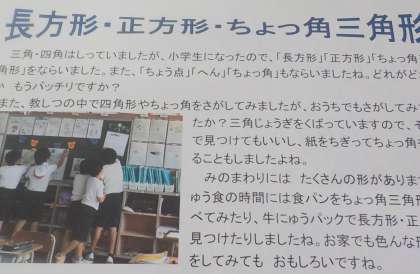 長方形・正方形・ちょっ角三角形
三角・四角はしっていましたが、小学生になったので、「長方形」「正方形」「ちょっ角
角形」をならいました。また、「ちょう点」「へん」「ちょっ角」もならいましたね。どれがど
か もうバッチリですか？
また、教しつの中で四角形やちょっ角をさがしてみましたが、おうちでもさがしてみ
たか？三角じょうぎをくばっていますので、そ
で見つけてもいいし、紙をちぎってちょっ角
ることもしましたよね。
みのまわりには たくさんの形があります
ゅう食の時間には食パンをちょっ角三角形
べてみたり、牛にゅうパックで長方形・正
見つけたりしましたね。お家でも色んな形
をしてみても おもしろいですね。